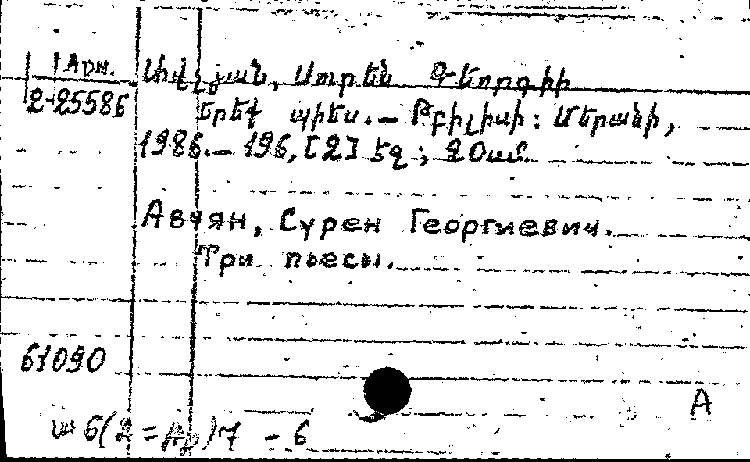 Арм.
2-25586
Ավչյան, Սուրեն Գեորգիի
Երեք պիես.— Թբիլիսի: Մերանի,
1986.— 196, [2] էջ; 20սմ
Авчян, Сурен Георгиевич.
Три пьесы.
61090
А
6(2=Ар)7 - 6